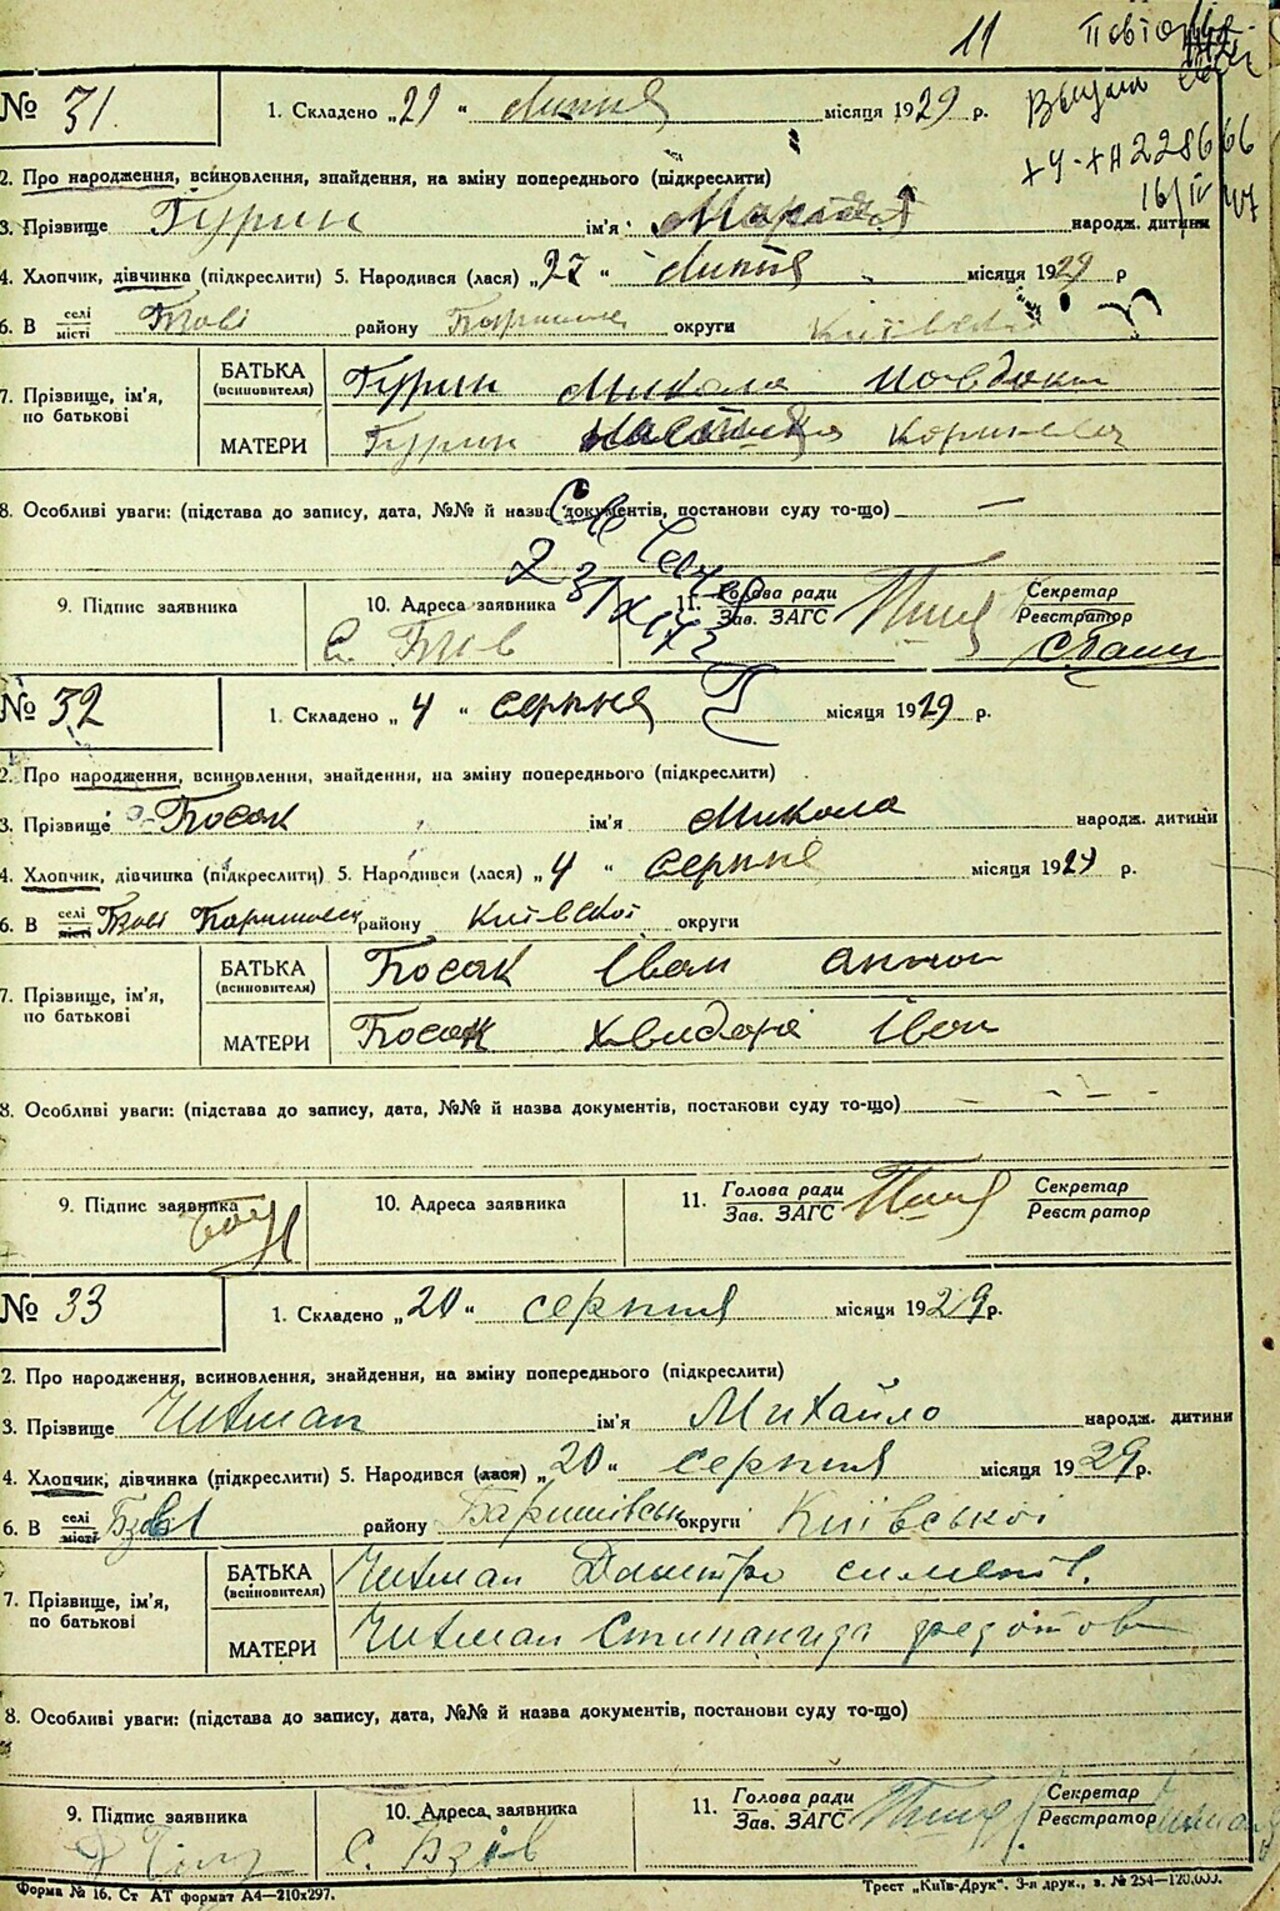 11
№ 31. 1. Складено „29“ липня місяця 1929 р.
2. Про народження, всиновлення, знайдення, на зміну попереднього (підкреслити)
3. Прізвище Гурин ім'я народж. дитини
4. Хлопчик, дівчинка (підкреслити) 5. Народився (лася) „27“ липня місяця 1929 р
6. В селі місті Бзові району округи Київської
7. Прізвище, ім'я, по батькові
БАТЬКА (всиновителя) Гурин Микола
МАТЕРИ Гурин
8. Особливі уваги: (підстава до запису, дата, №№ й назва документів, постанови суду то-що) —
9. Підпис заявника 10. Адреса заявника 11. Голова ради Зав. ЗАГС Секретар Реєстратор
с. Бзів
№ 32 1. Складено „4“ серпня місяця 1929 р.
2. Про народження, всиновлення, знайдення, на зміну попереднього (підкреслити)
3. Прізвище Босак ім'я Микола народж. дитини
4. Хлопчик, дівчинка (підкреслити) 5. Народився (лася) „4“ серпня місяця 1929 р.
6. В селі місті Бзові району Київської округи
7. Прізвище, ім'я, по батькові
БАТЬКА (всиновителя) Босак Іван Антон
МАТЕРИ Босак Хведора Іван
8. Особливі уваги: (підстава до запису, дата, №№ й назва документів, постанови суду то-що)
9. Підпис заявника 10. Адреса заявника 11. Голова ради Зав. ЗАГС Секретар Реєстратор
№ 33 1. Складено „20“ серпня місяця 1929 р.
2. Про народження, всиновлення, знайдення, на зміну попереднього (підкреслити)
3. Прізвище ім'я Михайло народж. дитини
4. Хлопчик, дівчинка (підкреслити) 5. Народився (лася) „20“ серпня місяця 1929 р.
6. В селі місті Бзові району Баришівськ округи Київської
7. Прізвище, ім'я, по батькові
БАТЬКА (всиновителя) Дмитро
МАТЕРИ федотов
8. Особливі уваги: (підстава до запису, дата, №№ й назва документів, постанови суду то-що)
9. Підпис заявника 10. Адреса заявника 11. Голова ради Зав. ЗАГС Секретар Реєстратор
с. Бзів
Форма № 16. Ст АТ формат А4—210х297. Трест „Київ-Друк“. 3-я друк., з. № 254—120.000.